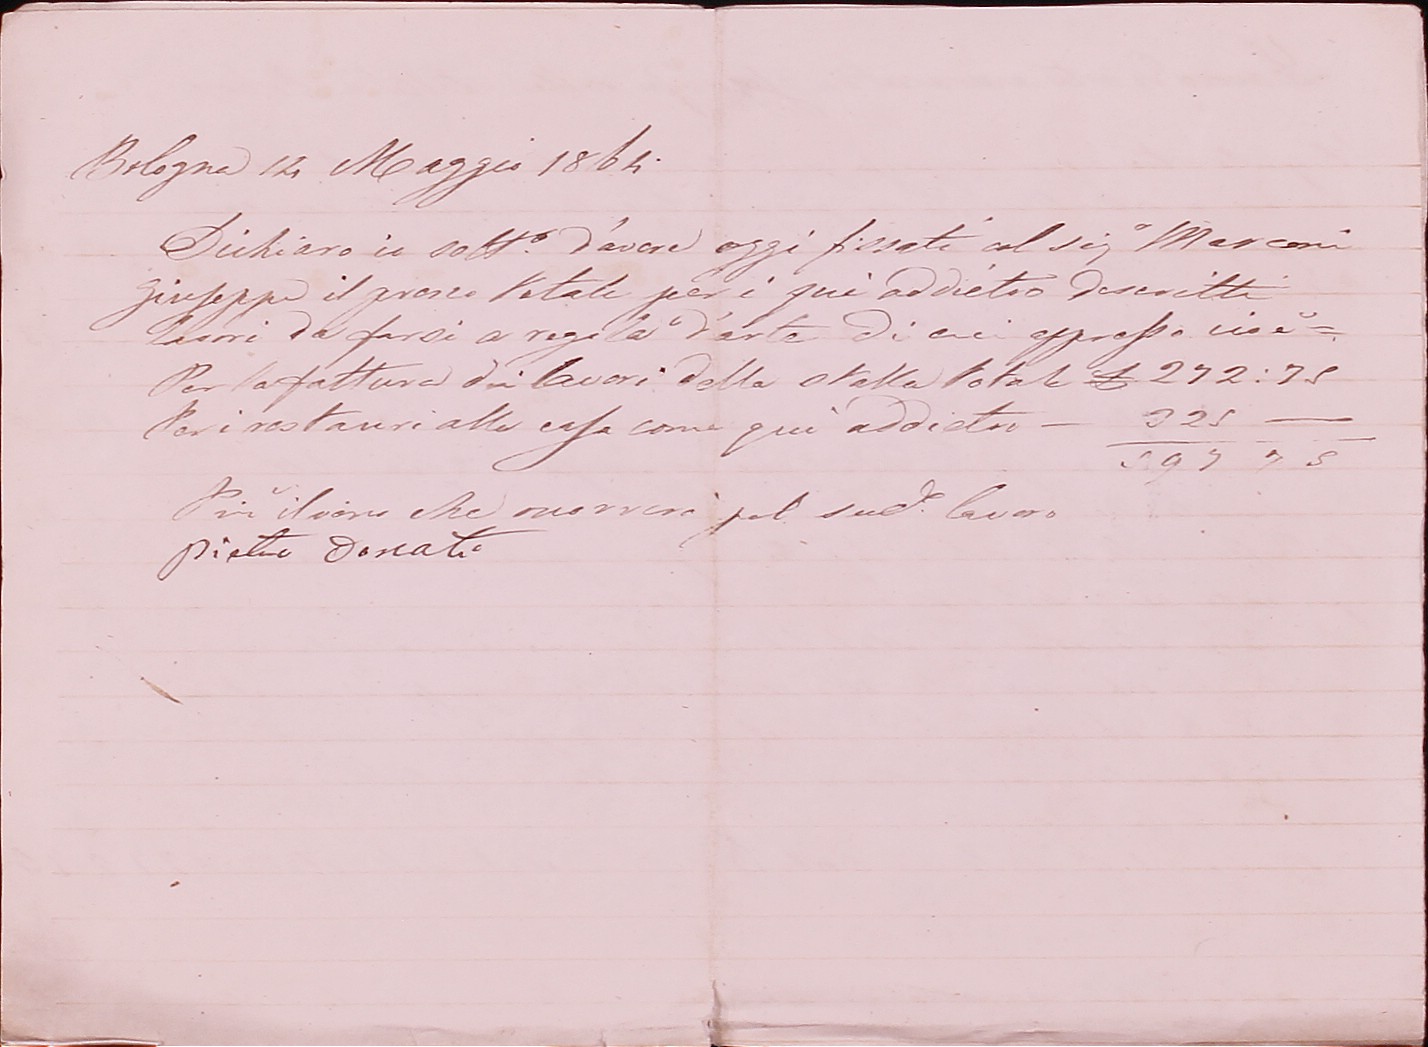 Bologna 14 Maggio 1864.
Dichiaro io sott.o d'avere oggi fissato al sig.o Marconi
Giuseppe il prezzo totale per i qui addietro descritti
lavori da farsi a regola d'arte di cui appresso cioè =
Per la fattura dei lavori della stalla totale £ 272:75
Per i restauri alla casa come qui addietro — 325 —
597 75
Più il vino che occorrerà pel sud.o lavoro
Pietro Donati